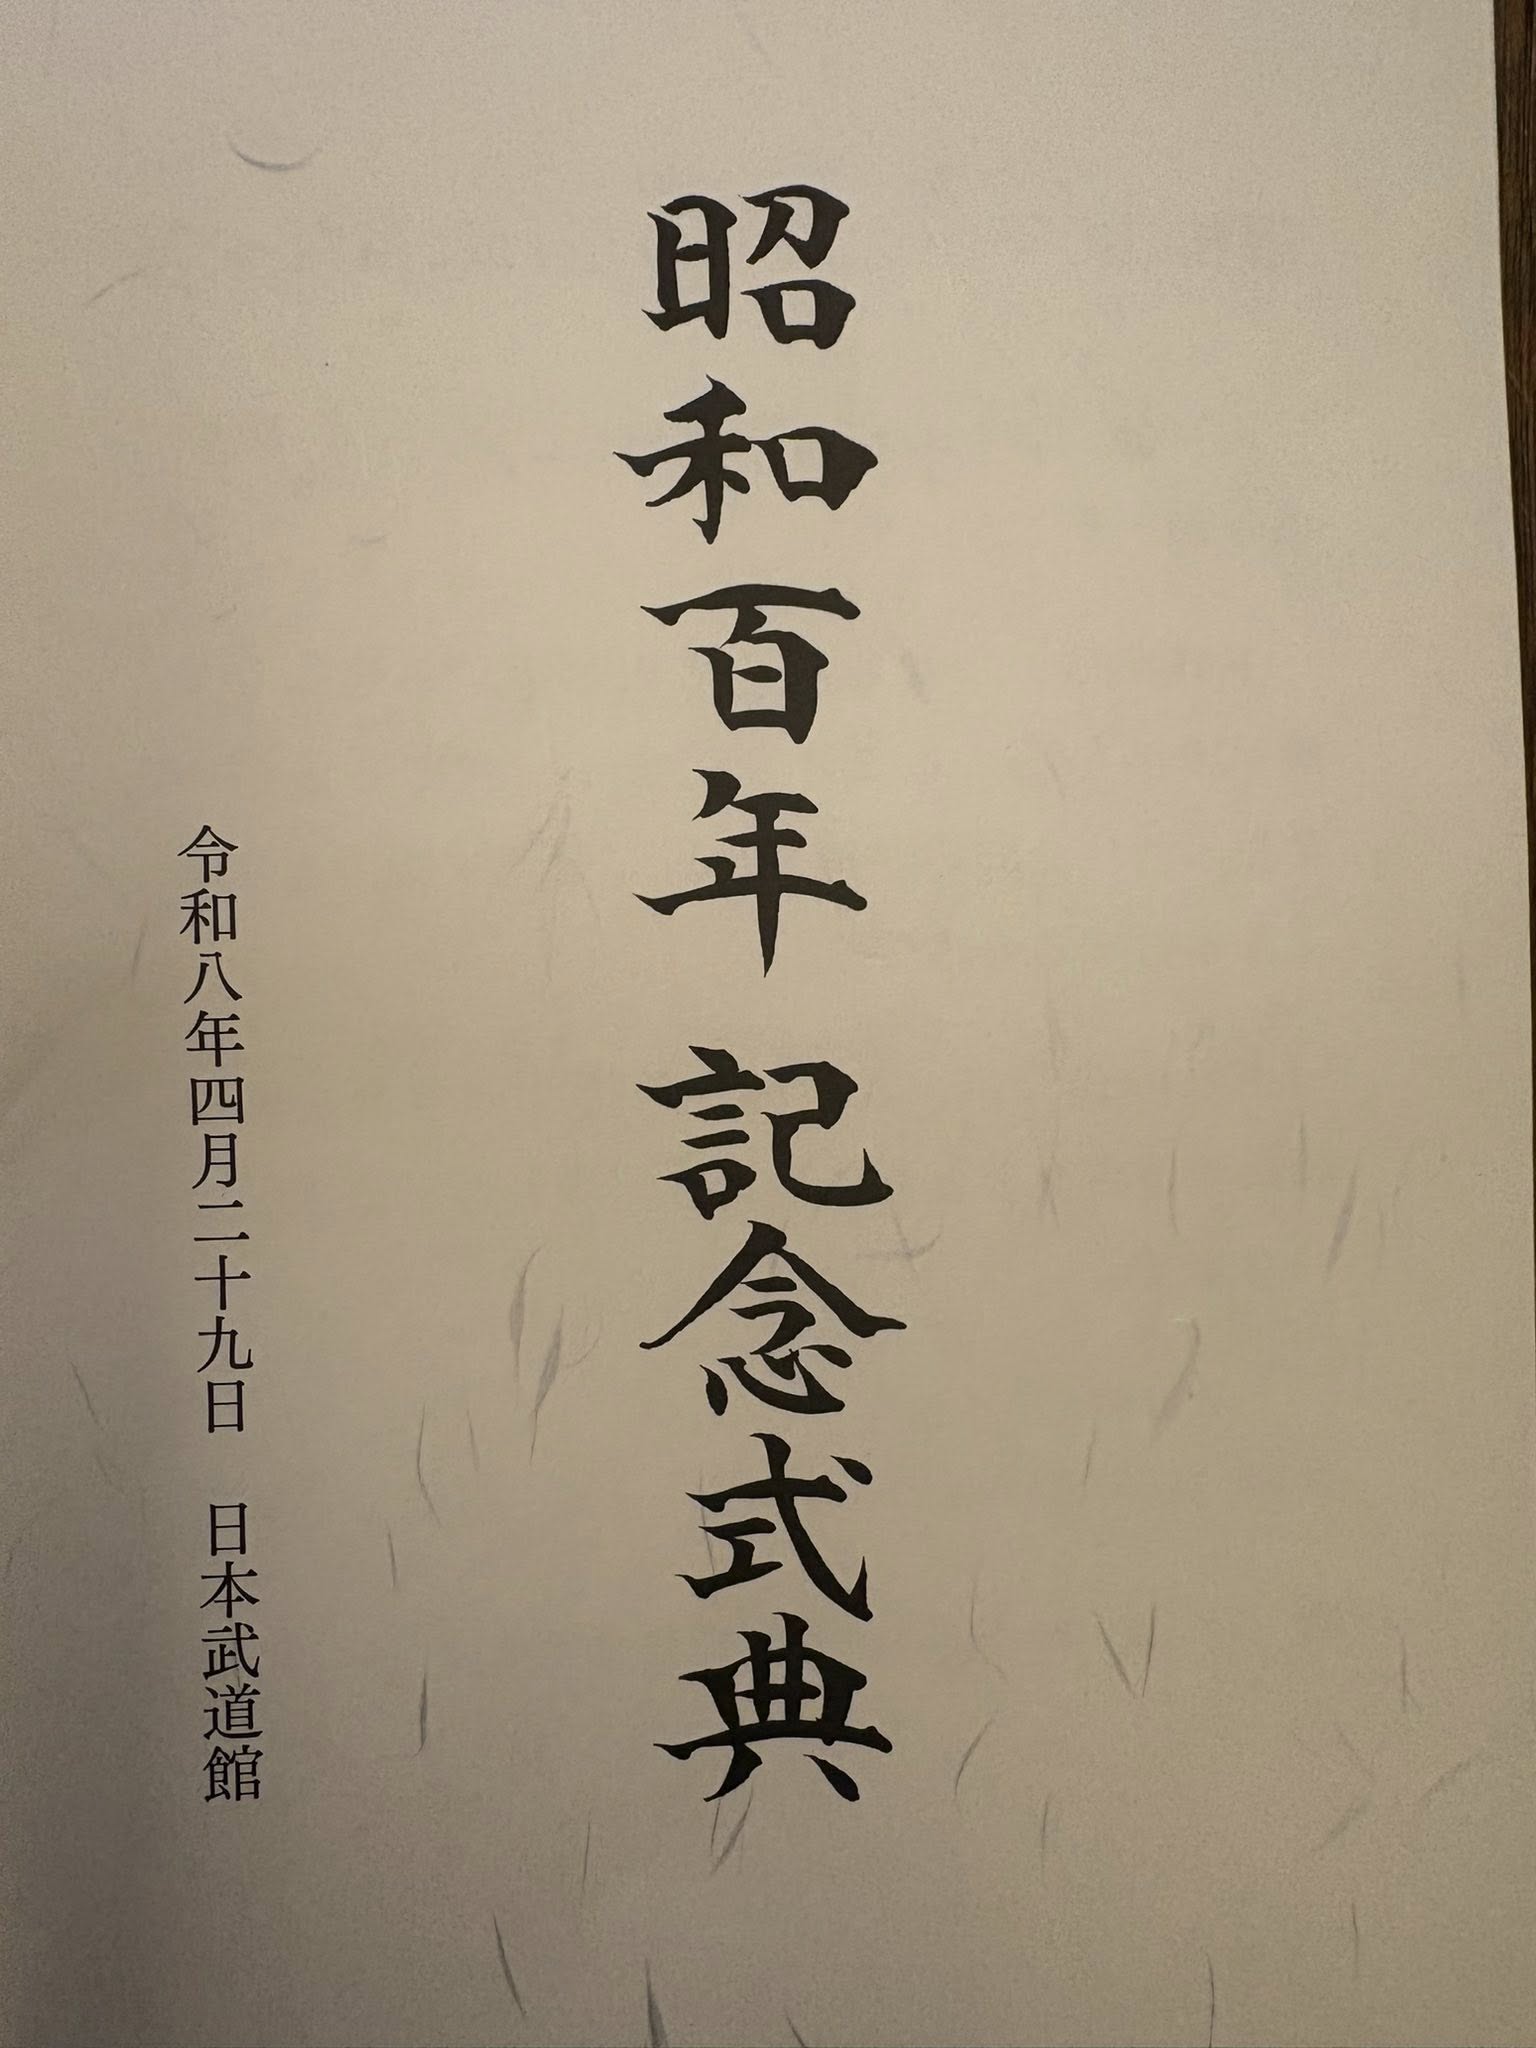 昭和百年 記念式典
令和八年四月二十九日　日本武道館